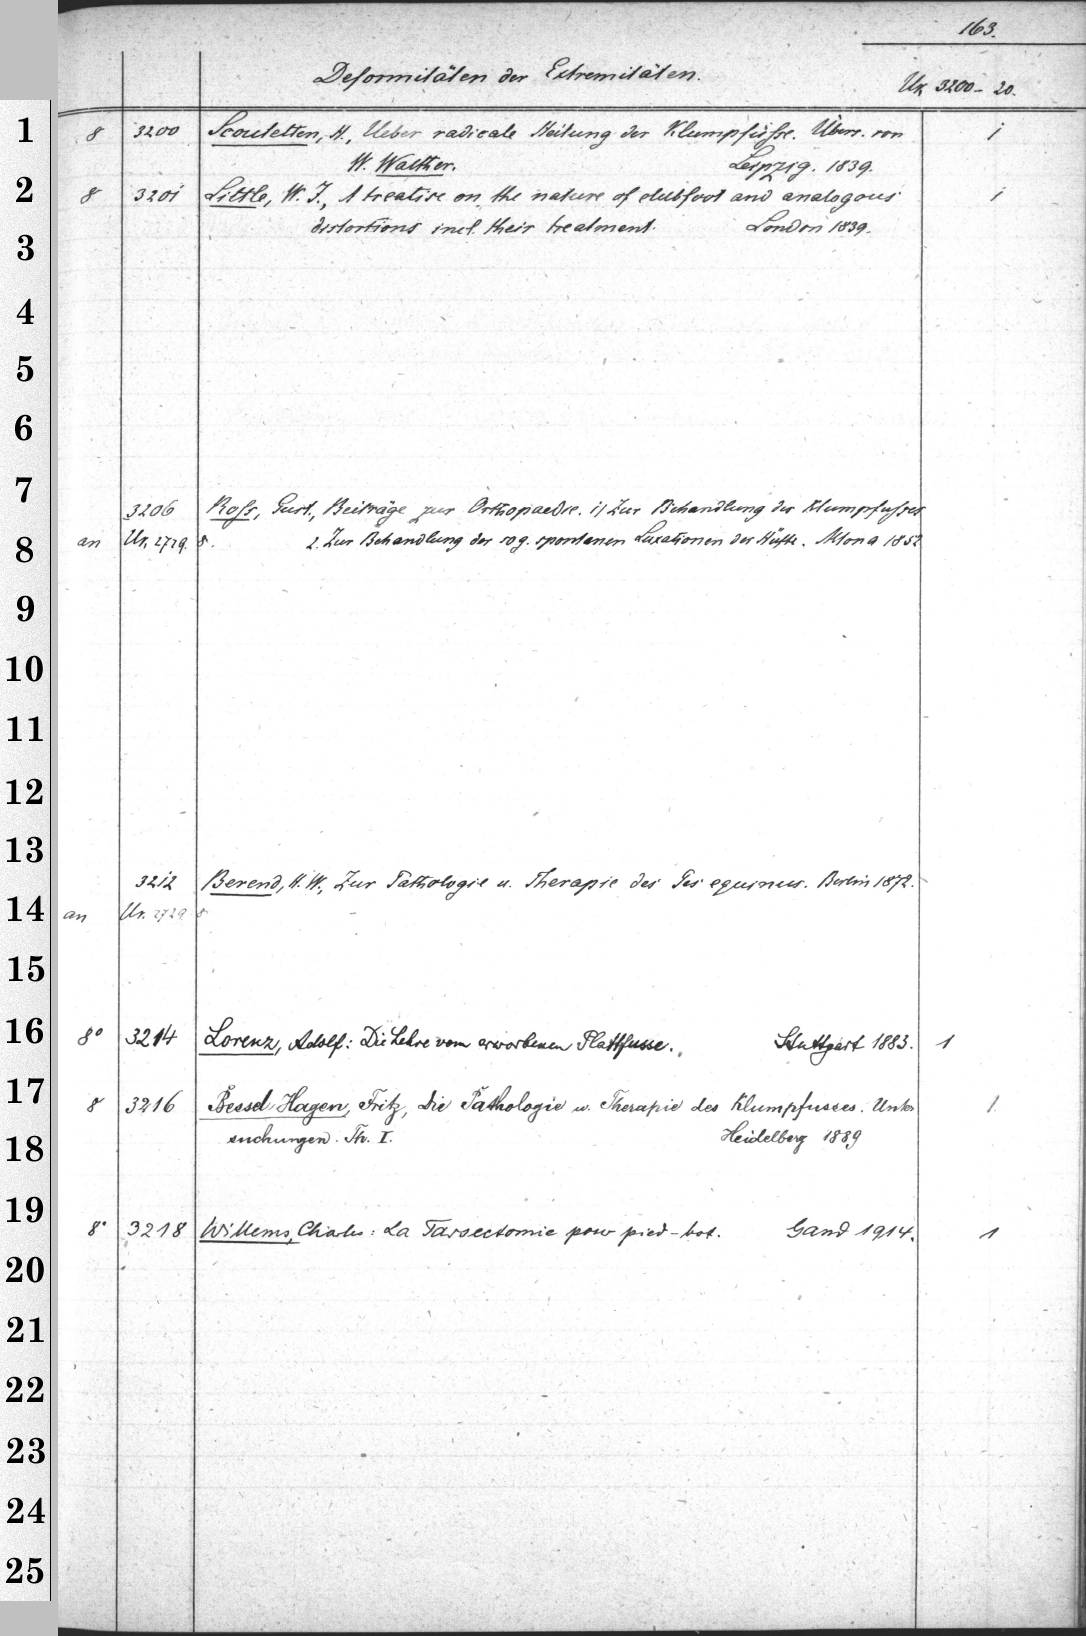 163.
Deformitäten der Extremitäten.
Uk 3200-20.
1 8 3200 Scoutetten, H., Ueber radicale Heilung der Klumpfüsse. Übers. von 1
W. Walther. Leipzig. 1839.
2 8 3201 Little, W. J., A treatise on the nature of clubfoot and analogous 1
3 distortions incl. their treatment. London 1839.
4
5
6
7 3206 Ross, Gust., Beiträge zur Orthopaedie. 1) Zur Behandlung der Klumpfusses
8 an Un 2729. 8. 2. Zur Behandlung der sog. spontanen Luxationen der Hüfte. Altona 1852
9
10
11
12
13 3212 Berend, H. W., Zur Pathologie u. Therapie des Pes equinus. Berlin 1872.
14 an Un. 2729 8
15
16 8° 3214 Lorenz, Adolf: Die Lehre vom erworbenen Plattfusse. Stuttgart 1883. 1
17 8 3216 Bessel-Hagen, Fritz, Die Pathologie u. Therapie des Klumpfusses. Unter 1
18 suchungen. Th. I. Heidelberg 1889
19 8° 3218 Willems, Charles: La Tarsectomie pour pied-bot. Gand 1914. 1
20
21
22
23
24
25